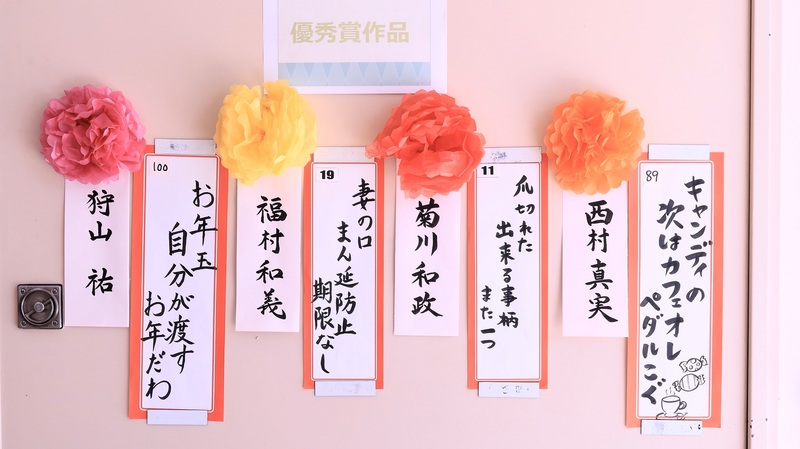 優秀賞作品
89
キャンディの
次はカフェオレ
ペダルこぐ
西村真実
11
爪切れた
出来る事柄
また一つ
菊川和政
19
妻の口
まん延防止
期限なし
福村和義
100
お年玉
自分が渡す
お年だわ
狩山 祐